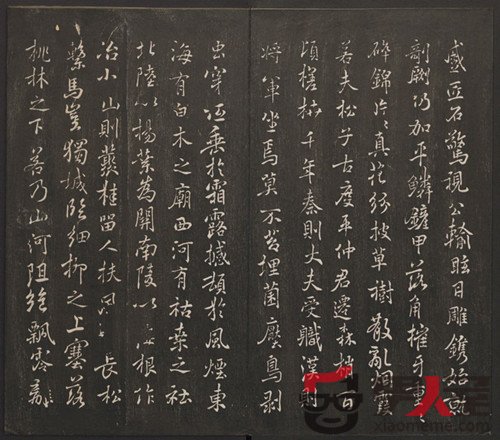 感匠石驚視公輸眩目雕鐫始就
剞劂仍加平鱗鏟甲落角摧牙重
碎錦片真花紛披草樹散亂烟霞
若夫松子古度平仲君遷森梢百
頃槎枿千年秦則大夫受職漢則
將軍坐焉莫不苔埋菌壓鳥剥
虫穿垂於霜露撼頓於風煙東
海有白木之廟西河有枯桑之社
北陸以楊葉為關南陵以梅根作
冶小山則叢桂留人扶風長松
繫馬豈獨城臨細柳之上塞落
桃林之下若乃山河阻絶飄零離
xiaomeme.com